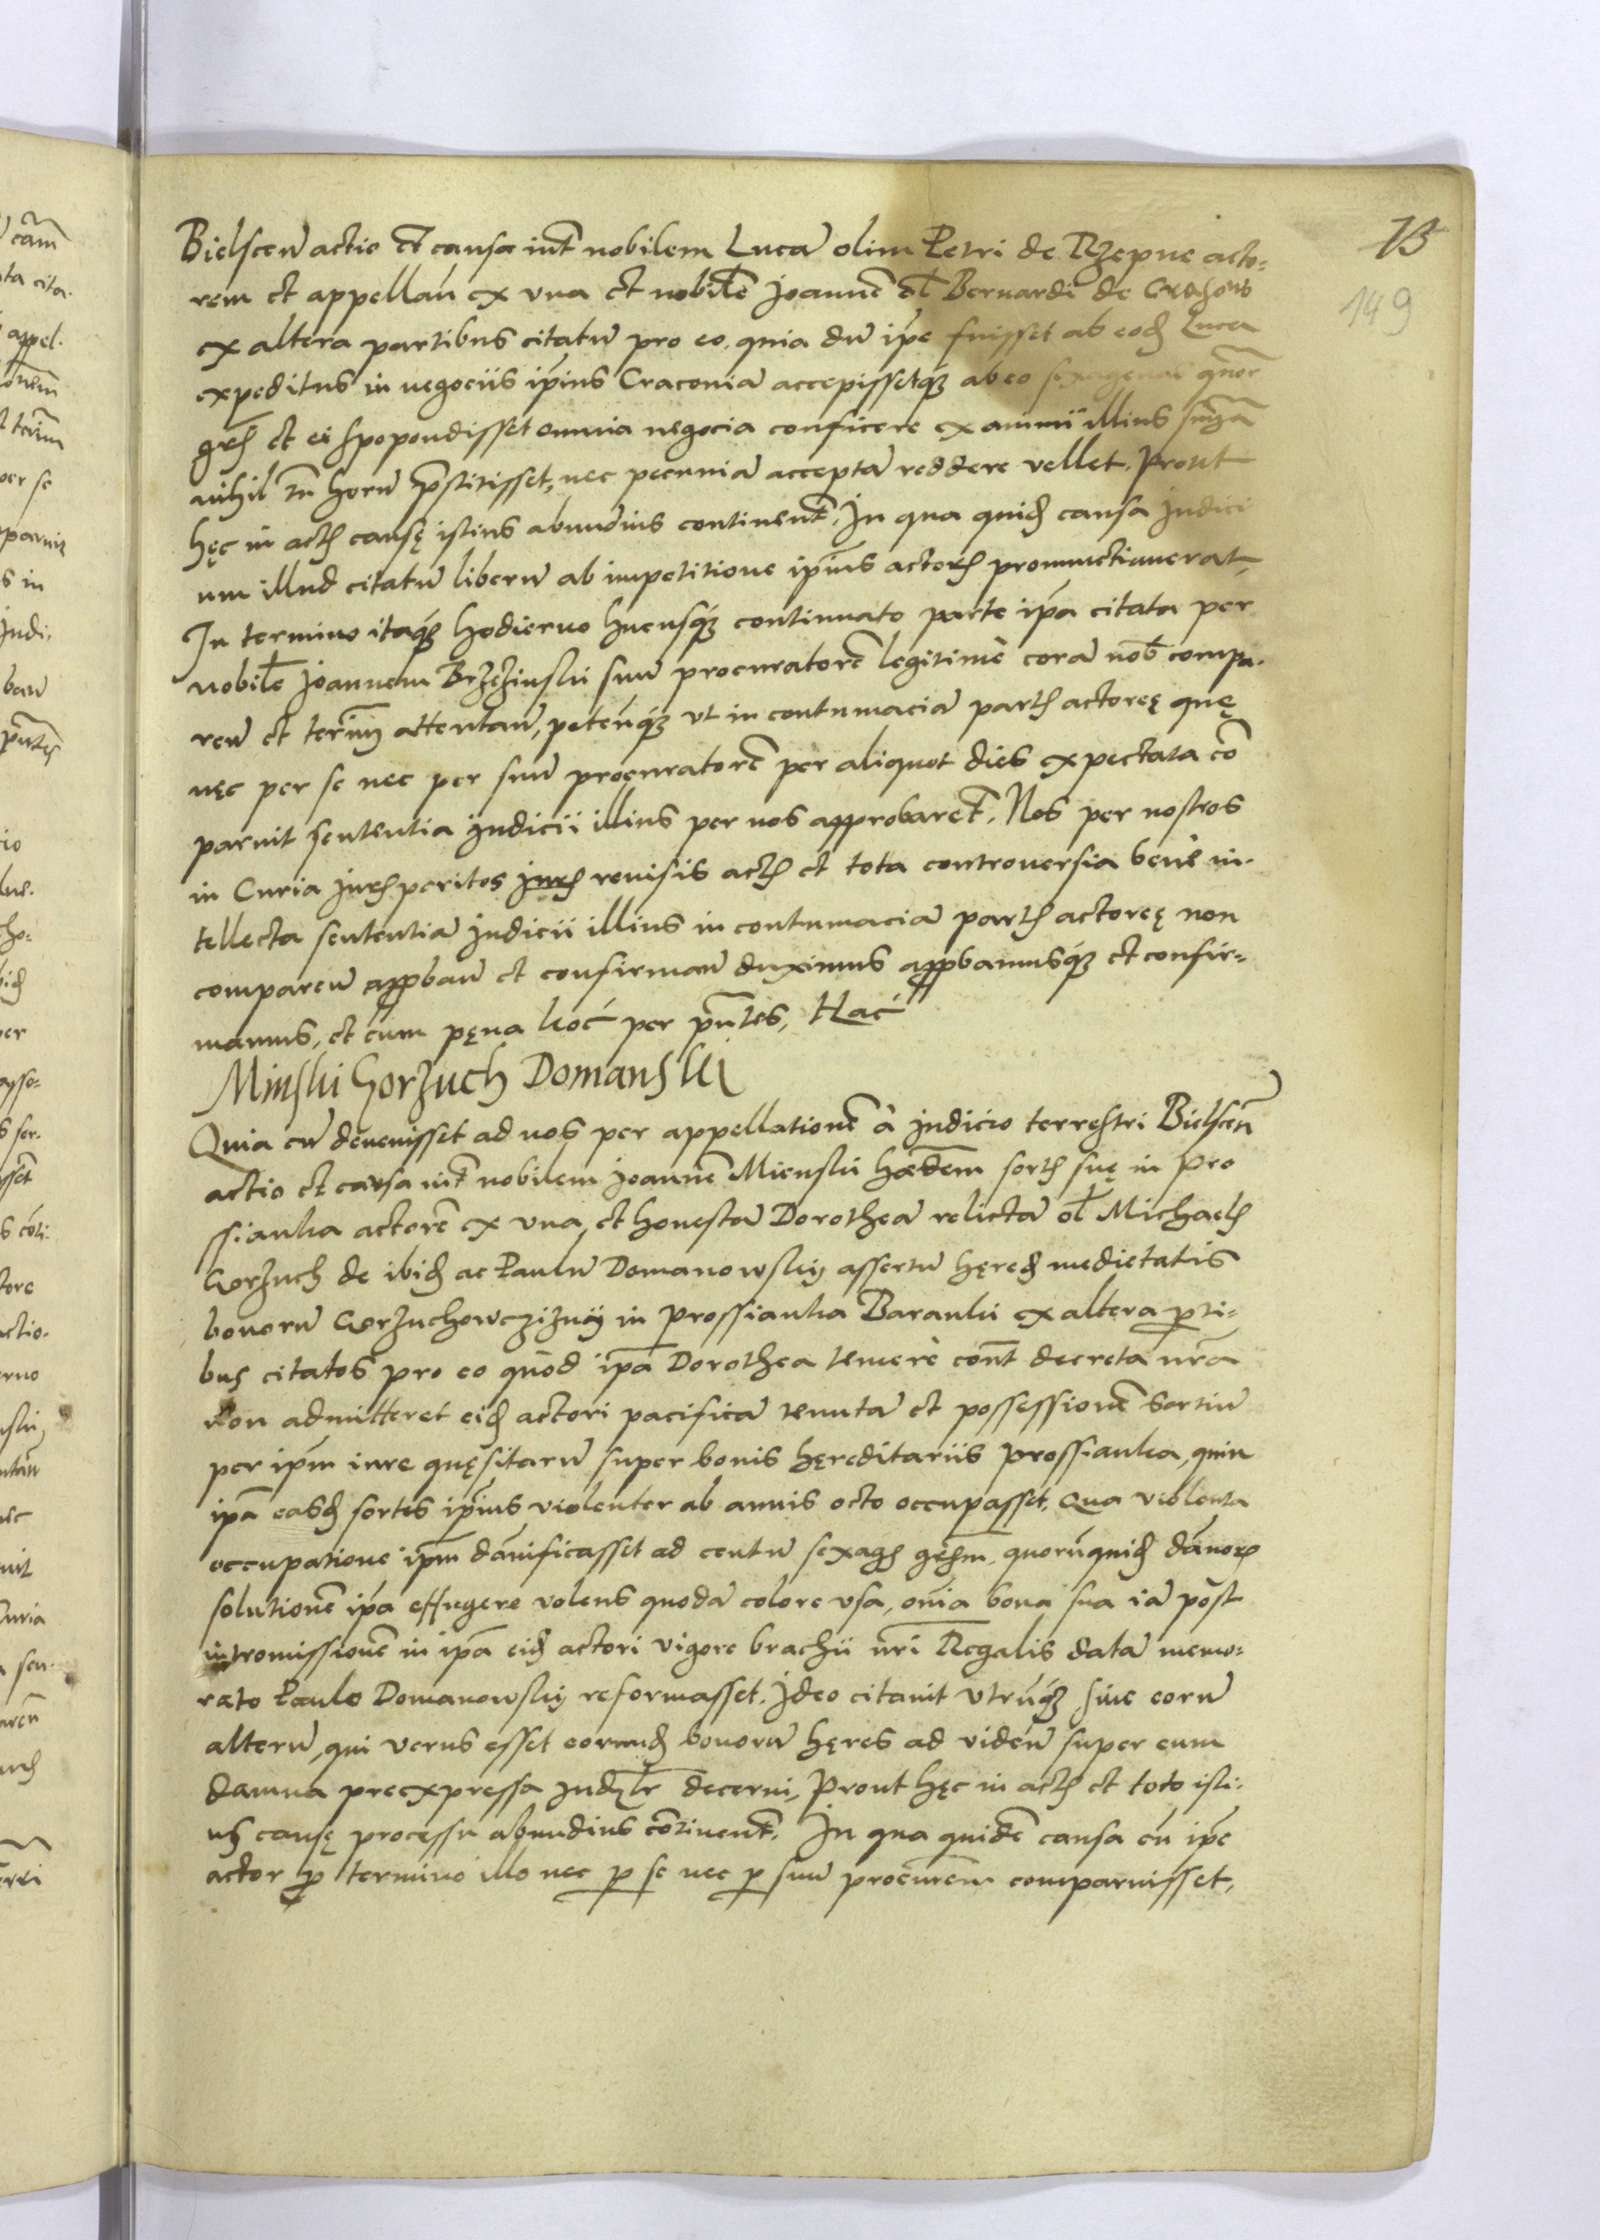 73
149
Bielscen̄ actio et causa int̄ nobilem Lucā olim Petri de Rzepne acto=
rem et appellan̄ ex vna et nobilē Joannē ol̄ Bernardi de
ex altera partibus citatū pro eo, quia dū ip̄e fuisset ab eod̄ Luca
expeditus in negociis ip̄ius Cracouiā accepissetq̨ ab eo sexagenas
et ei spopondisset omnia negocia conficere ex animi illius
nihil tn̄ horū p̄stitisset, nec pecuniā acceptā reddere vellet. Prout
hęc in actȷ causę istius abundius continent̄. In qua quid̄ causa Judici
um illud citatū liberū ab impetitione ip̄ius actorȷ pronunctiauerat,
In termino itaq̨ hodierno hucusq̨ continuato parte ip̄a citata per
nobilē Joannem Brzezinski suū procuratorē legitimè corā nob̄ compa-
ren̄ et termin̄ attentan̄, peten̄q̨ vt in contumaciā partȷ actoreę quę
nec per se nec per suū procuratorē per aliquot dies expectata cō
paruit sententia Judicii illius per nos approbaret̄. Nos per nostros
in Curia Jurȷ peritos Jurȷ reuisis actȷ et tota controuersia benè in-
tellecta sententiā Judicii illius in contumaciā partȷ actoreę non
comparen̄ appban̄ et confirman̄ duximus appbamusq̨ et confir=
mamus, et cum pęna hoc̄ per pn̄tes, Hac̄
Minski Gorzuch Domanski
Quia cū deuenisset ad nos per appellationē à Judicio terrestri Bielscen̄
actio et causa int̄ nobilem Joannē Mienski hæredem sortȷ suę in Pro
ssianka actorē ex vna, et honestā Dorotheā relictā ol̄ Michaelȷ
Gorzuch de ibid̄ ac Paulū Domanowskij assertū hęred̄ medietatis
bonorū Gorzuchowczizny in Prossianka Baranki ex altera p̱ti=
bus citatos pro eo quod ip̄a Dorothea temerè cont̄ decreta nr̄a
non admitteret eid̄ actori pacificā tenutā et possessionē sortiū
per ip̄m iure quęsitarū super bonis hęreditariis Prossianka, quin
ip̄a easd̄ sortes ip̄ius violenter ab annis octo occupasset, Qua violenta
occupatione ip̄m dānificasset ad centū sexagȷ , quorūquid̄ dānorȷ
solutionē ip̄a effugere volens quodā colore vsa, om̄ia bona sua iā post
intromissionē in ip̄a eid̄ actori vigore brachii nr̄i Regalis datā memo=
rato Paulo Domanowskij reformasset. Ideo citauit Vtrūq̨ siue eorū
alterū, qui verus esset eorund̄ bonorū hęres ad viden̄ super eum
damna preexpressa decerni, Prout hęc in actȷ et toto isti=
us causę processu abundius cōtinent̄. In qua quidē causa cū ip̄e
actor p̱ termino illo nec p̱ se nec p̱ suū procurēm comparuisset,